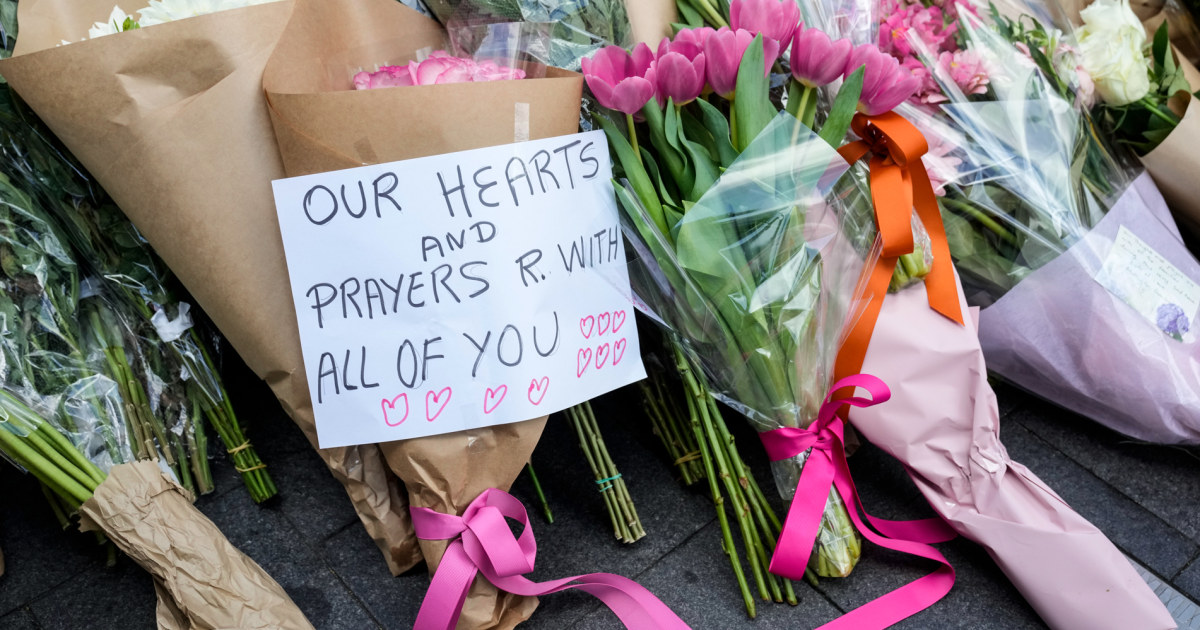 OUR HEARTS
AND
PRAYERS R. WITH
ALL OF YOU